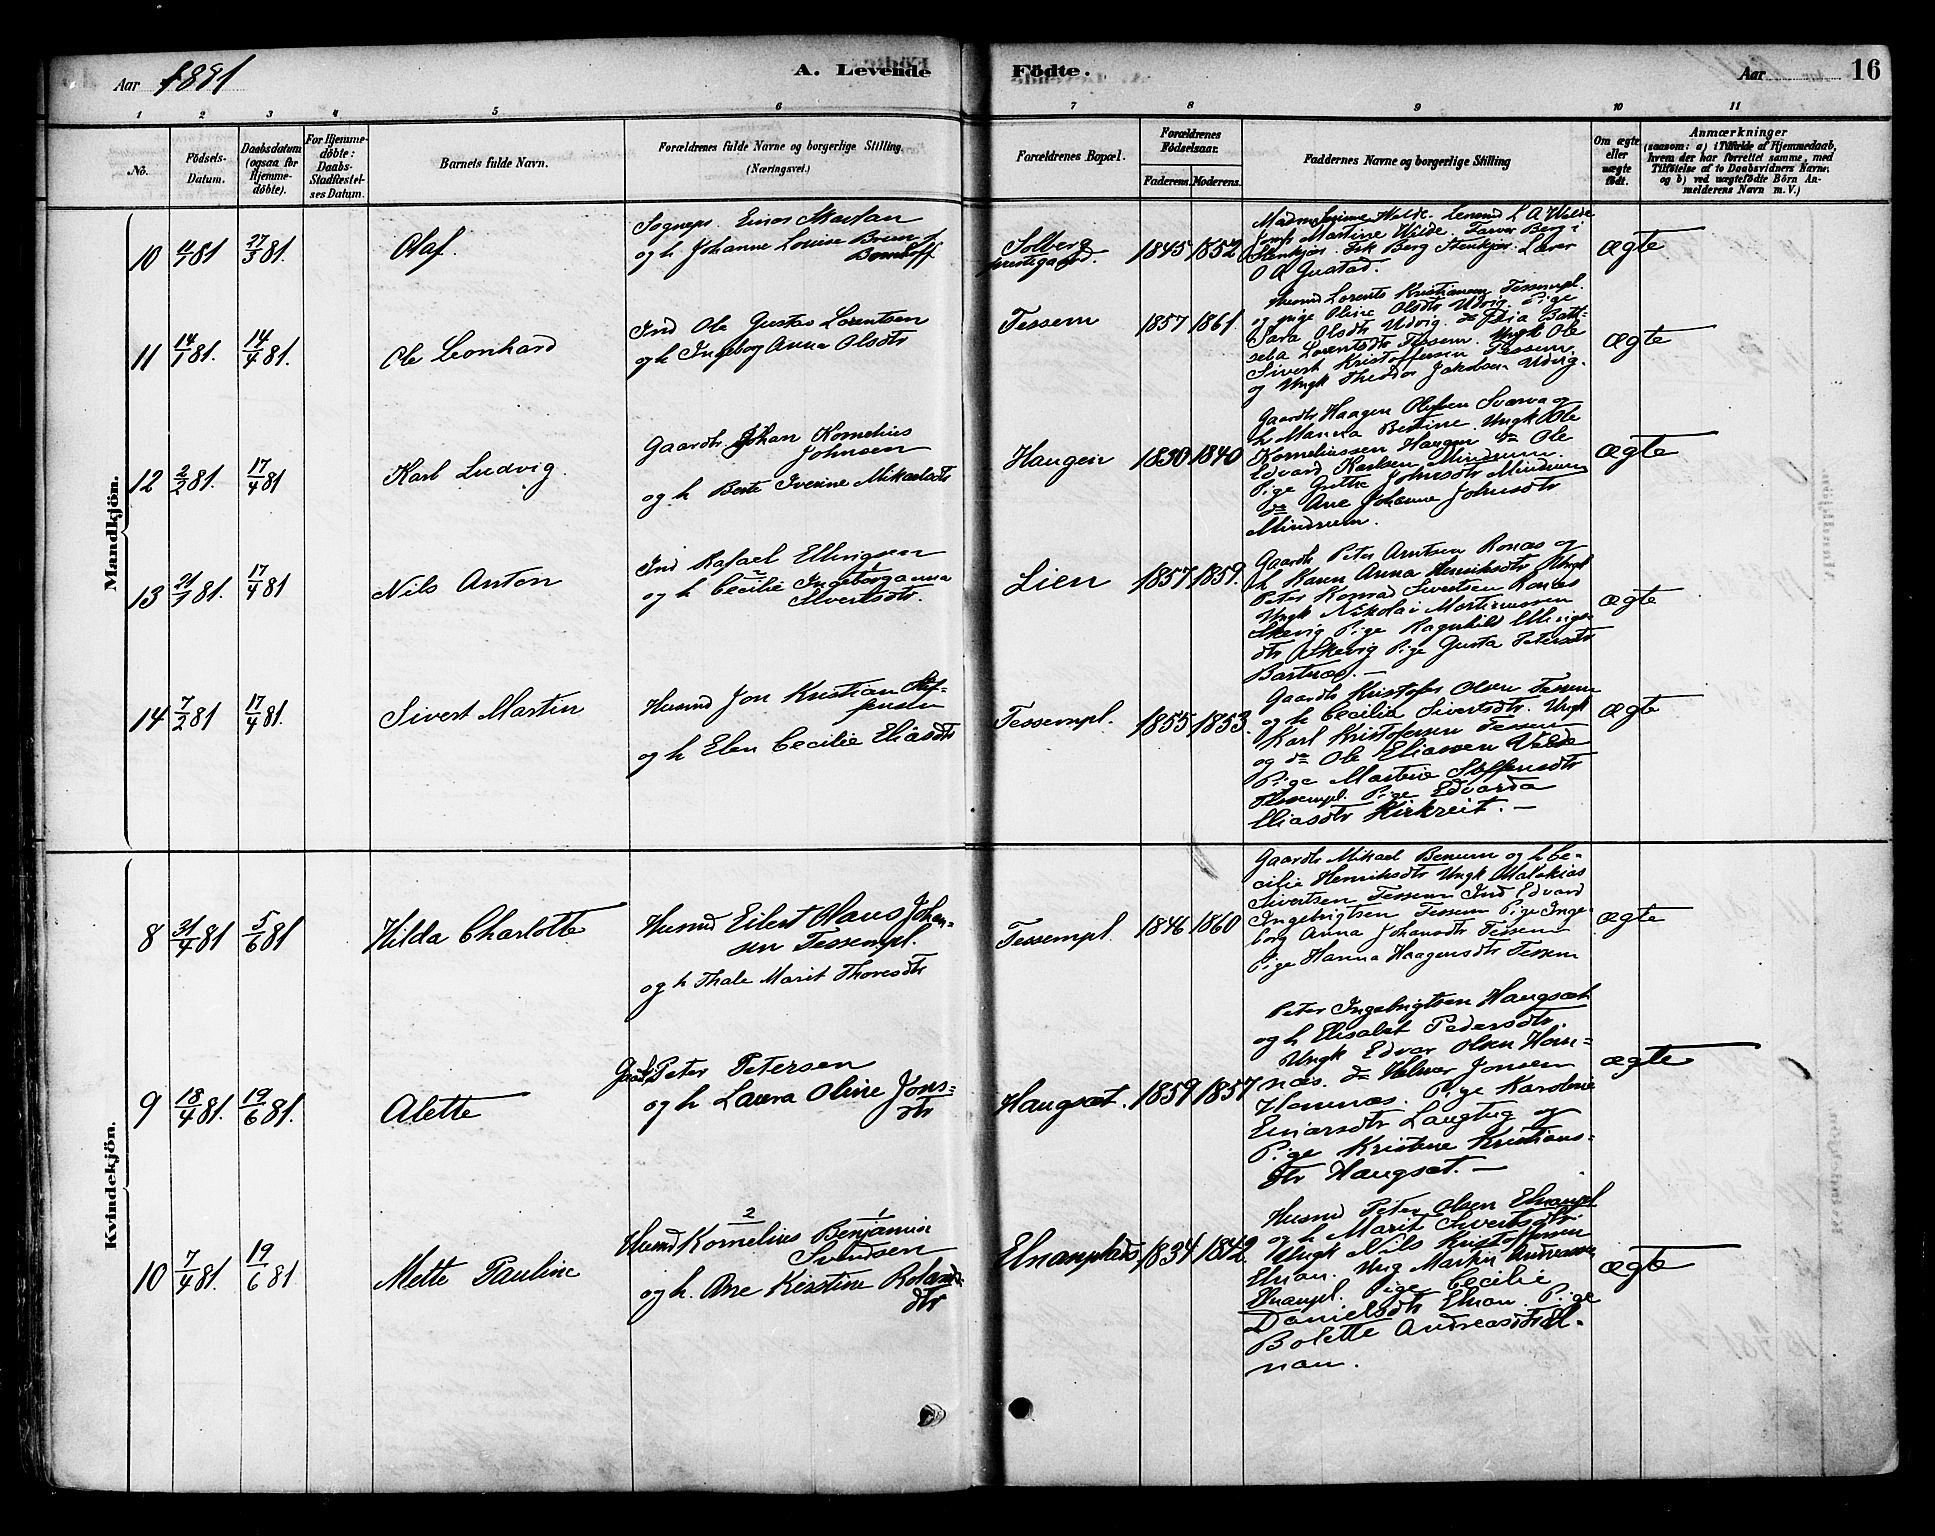 Aar 1881
A. Levende
Födte.
Aar
16
1
2
3
4
5
6
7
8
9
10
11
No.
Födsels-
Datum.
Daabsdatum
(ogsaa for
Hjemme-
døbte).
For Hjemme-
døbte:
Daabs
Stadfæstel-
ses Datum.
Barnets fulde Navn.
Forældrenes fulde Navne og borgerlige Stilling.
(Næringsvei.)
Forældrenes Bopæl.
Forældrenes
Födselsaar.
Faderens.
Moderens.
Faddernes Navne og borgerlige Stilling
Om ægte
eller
uægte
født.
Anmærkninger
(saasom: a) i Tilfælde af Hjemmedaab,
hvem der har forrettet samme, med
Tilföielse af to Daabsvidners Navne,
og b) ved uægtefödte Börn An-
melderens Navn m. V.)
Mandkjön.
10
27/3 81.
Olaf.
Sognepr.
og h. Johanne Louise Brun f.
Solberg
prestegaard.
1845 1852
Martine Wilde.
Stenkjær. Frk Berg Stenkjær. Lærer
O A Gustad.
ægte
11 14/1 81. 14/4 81.
Ole Leonhard
Ind Ole Gustav Lorentsen
og h Ingeborg Anna Olsdtr
Tessem
1857 1861.
Husmd Lorents Kristiansen Tessempl.
og pige Oline Olsdtr Udvig. Pige
Sara Olsdtr Udvig.
seba Lorentsdtr Tessem. Ungk Ole
Sivert Kristoffersen Tessem
og Ungk Theodor Jakobsen Udvig.
ægte
12 2/2 81. 17/4 81
Karl Ludvig.
Gaardbr. Johan Kornelius
Johnsen
og h Berte Iverine Mikaelsdtr
Haugen
1830 1840
Gaardbr Haagen Olufsen Sværva og
h Manna Bertine. Ungk Ole
Korneliussen Haugen do Ole
Edvard Karlsen Mindrum.
Pige Johnsdtr Mindrum
do Ane Johanna Johnsdtr
Mindrum.
ægte
13 21/1 81. 17/4 81
Nils Anton
Ind Rafael Ellingsen
2 1
og h Cecilie Ingeborganna
Sivertsdtr.
Lien
1857 1859.
Gaardbr Peter Arntsen Ronæs og
h Karen Anna Henriksdtr Ungk
Peter Konrad Sivertsen Ronæs
Ungk Nikolai Martinussen
Skevig Pige Ragnhild Ellings-
dtr Skevig Pige Gusta Petersdtr
ægte
14 7/2 81 17/4 81.
Sivert Martin
Husmd Jon Kristian Stef-
fensen
og h Elen Cecilie Eliasdtr
Tessempl.
1855 1853.
Gaardbr Kristofer Olsen Tessem
og h Cecilia Sivertsdtr. Ungk
Karl Kristofersen Tessem
og do Ole Eliassen Velde
Pige Martine Steffensdtr
Tessempl. Pige Edvarda
Eliasdtr Kirkreit. —
ægte
Kvindekjön.
8 31/4 81 5/6 81
Hilda Charlotte
Husmd Eilert Olaus Johan-
sen Tessempl.
og h Thale Marit Thoresdtr
Tessempl.
1846 1860
Gaardbr Mikael Benum og h Ce-
cilie Henriksdtr Ungk Malakias
Sivertsen Tessem Ind Edvard
Ingebrigtsen Tessem Pige Inge-
borg Anna Johansdtr Tessem
Pige Hanna Haagensdtr Tessem
ægte
9 18/4 81. 19/6 81.
Alette
Gaardbr Peter Petersen
og h Laura Oline Jons-
dtr
Haugsæt.
1859 1857
Peter Ingebrigtsen Haugsæt
og h Elisabet Pedersdtr.
Ungk Edvar Olsen Hem-
næs. do Helmer Jonsen
Hemnæs. Pige Karoline
Einarsdtr Langtug og
Pige Kristine Kristians-
dtr Haugsæt. —
ægte
10 7/4 81. 19/6 81
Mette Pauline
2 1
Husmd Kornelius Benjamin
Svendsen
og h. Ane Kirstine Roland-
dtr
Elnanplads
1834 1842.
Husmd Peter Olsen Elnanpl
og h Marit Sivertsdtr
Ungk Nils Kristoffersen
Elnan. Ung Martin Andreassen
Elnanpl. Pige Cecilie
Danielsdtr Elnan. Pige
Bolette Andreasdtr El-
nan.
ægte